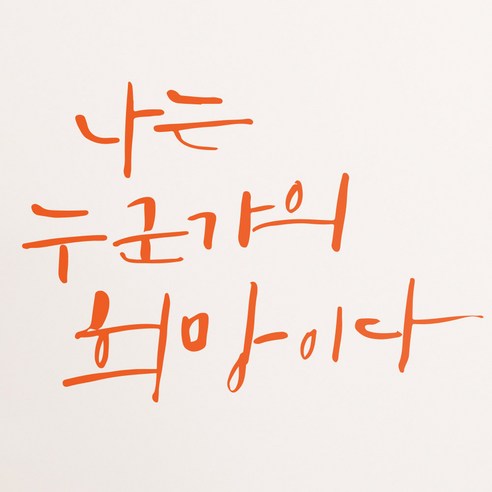 나는
누군가의
희망이다